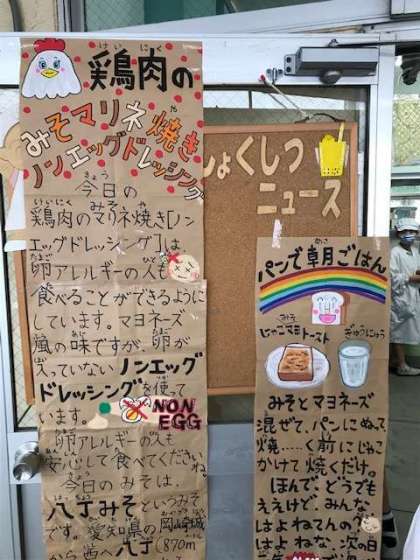 けいにく
鶏肉の
みそマリネ焼き
ノンエッグドレッシング
きょう
今日の
けいにく みそ や
鶏肉のマリネ焼き[ノン
エッグドレッシング]は、
たまご
卵アレルギーの人も
食べることができるように
しています。マヨネーズ
風の味ですが、卵が
入っていないノンエッグ
ドレッシングを使って
います。
NON
EGG
卵アレルギーの人も
安心して食べてくださいね。
今日のみそは、
八丁みそというみそ
です。愛知県の岡崎城
から西へ八丁(870m
しょくしつ
ニュース
めさ
パンで朝ごはん
みそ
じゃこマヨトースト
ぎゅうにゅう
みそとマヨネーズ
混ぜて、パンにぬって
焼......く前にじゃこ
かけて焼くだけ。
ほんで、どうでも
ええけど、みんな、
はよねてんの?
はよねな、次の日